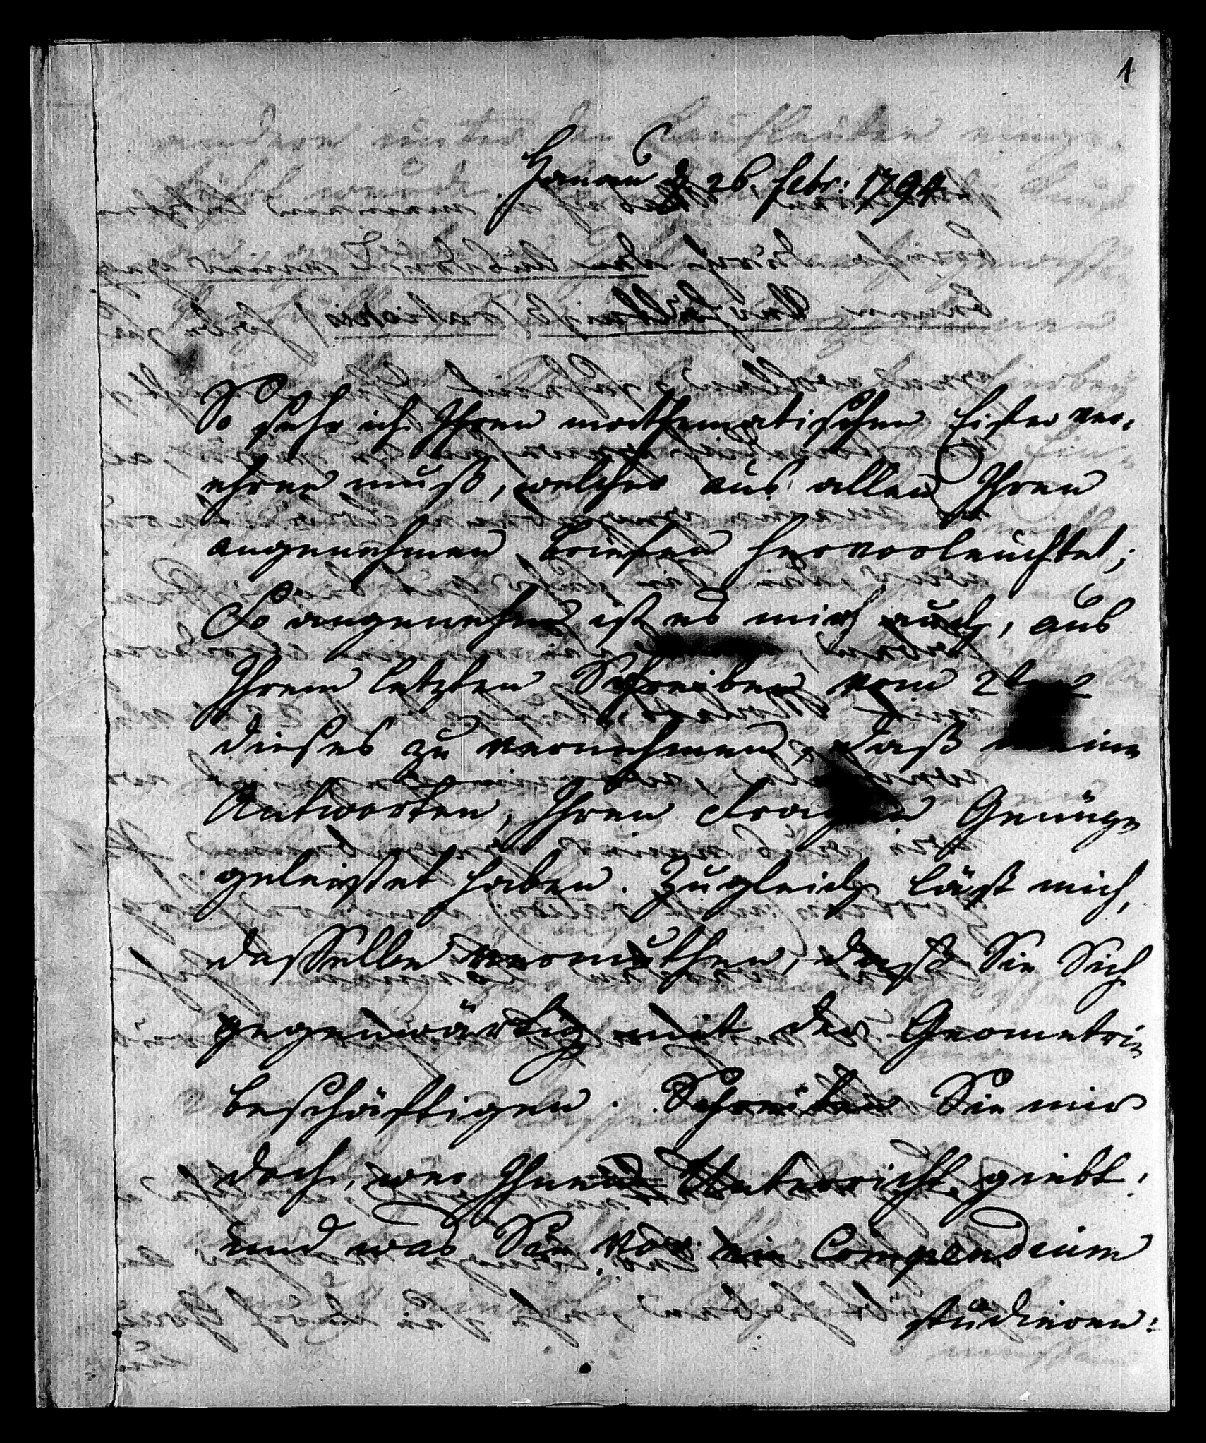 1
Hanau d 26. febr: 1794
So sehr ich Ihren mathematischen Eifer ver¬
ehren muß, welcher aus allen Ihren
angenehmen Briefen hervorleuchtet;
So angenehm ist es mir auch, aus
Ihrem letzten Schreiben vom
dieses zu vernehmen, daß meine
Antworten, Ihren Fragen Genüge
geleistet haben. Zugleich läßt mich,
dasselbe vermuthen, daß Sie Sich
gegenwärtig mit der Geometrie
beschäftigen. Schreiben Sie mir
doch, wer Ihnen Unterricht giebt:
und was Sie vor ein Compendium
studieren: